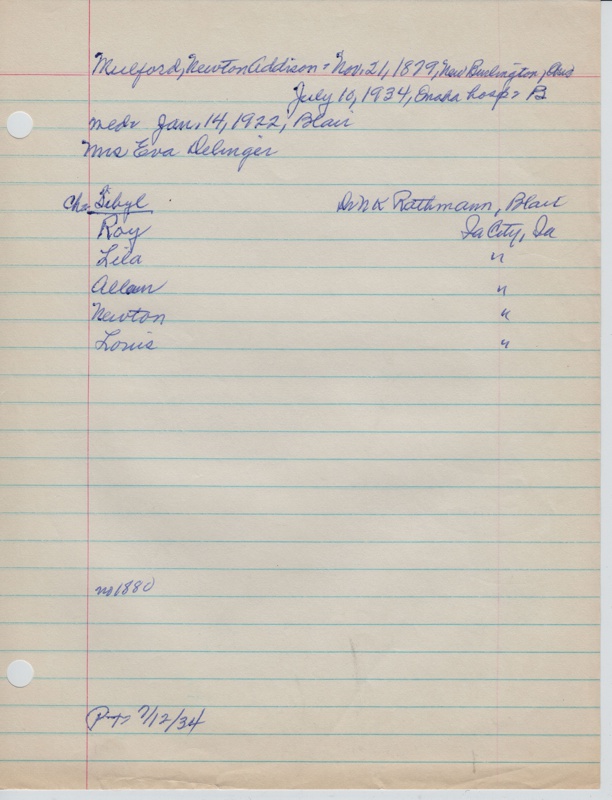 Mulford, Newton Addison = Nov. 21, 1879, New Burlington, Ohio
July 10, 1934, Omaha hosp = B
med = Jan. 14, 1922, Blair
Mrs Eva Delinger
Chn Sibyl Dr N K Rathmann, Blair
Roy Ia City, Ia
Lila "
Allan "
Newton "
Louis "
no 1880
P-T 7/12/34